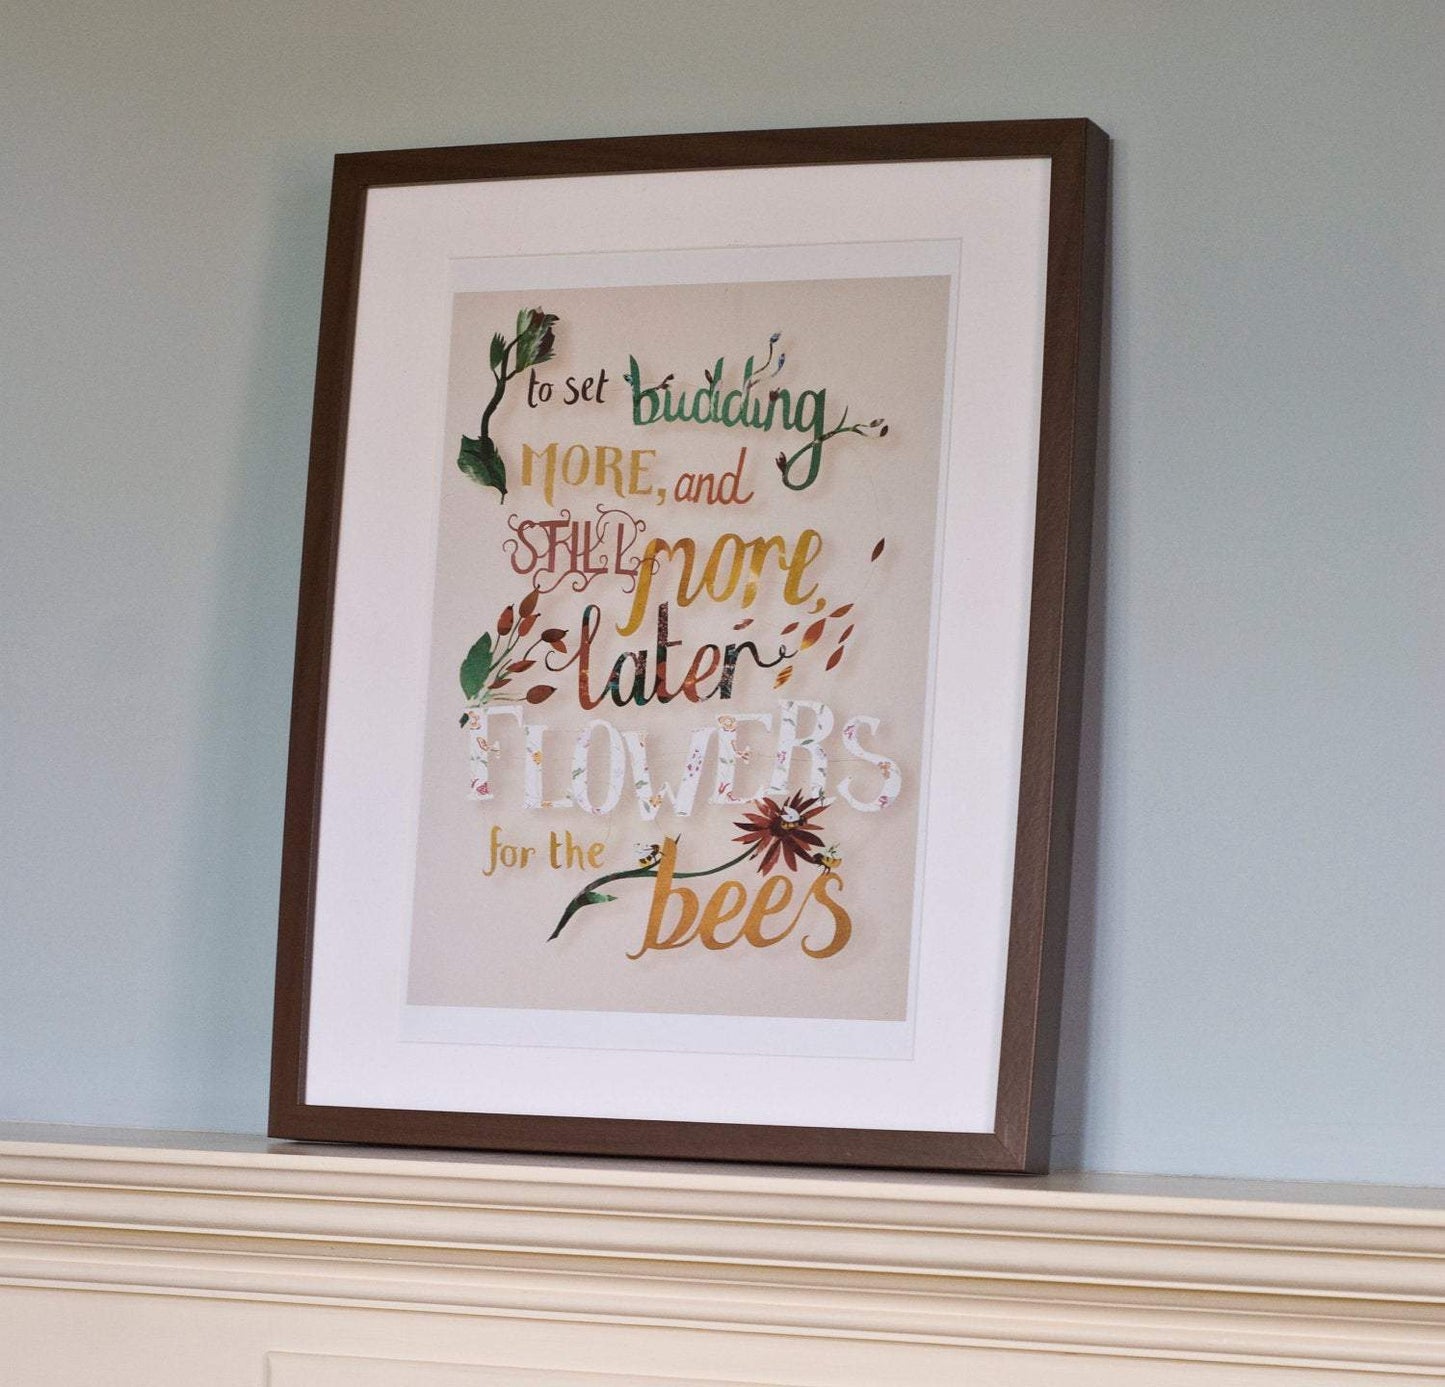 to set budding
MORE, and
STILL more,
later
FLOWERS
for the bees